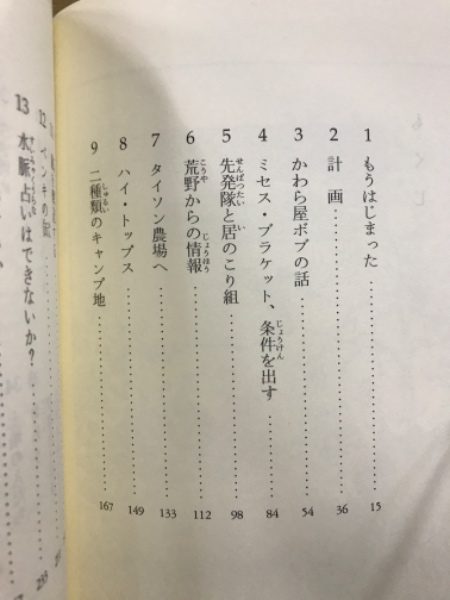 1 もうはじまった 15
2 計画 36
3 かわら屋ボブの話 54
4 ミセス・ブラケット、条件を出す 84
5 先発隊と居のこり組 98
6 荒野からの情報 112
7 タイソン農場へ 133
8 ハイ・トップス 149
9 二種類のキャンプ地 167
12
13 水脈占いはできないか?